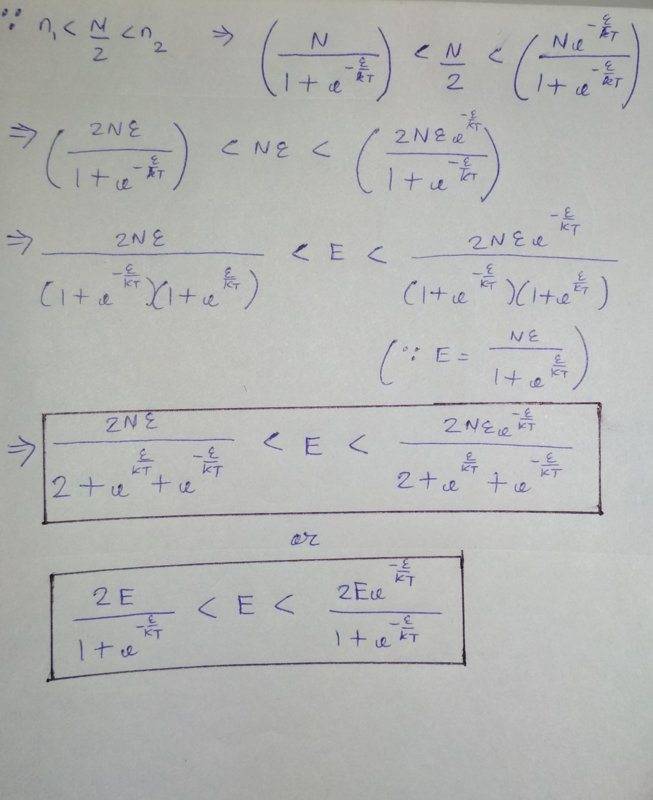 ∵ n₁ < N/2 < n₂ ⇒ (N/(1+e^(-ε/kT))) < N/2 < (Ne^(-ε/kT)/(1+e^(-ε/kT)))
⇒ (2Nε/(1+e^(-ε/kT))) < Nε < (2Nεe^(-ε/kT)/(1+e^(-ε/kT)))
⇒ 2Nε/((1+e^(-ε/kT))(1+e^(ε/kT))) < E < 2Nεe^(-ε/kT)/((1+e^(-ε/kT))(1+e^(ε/kT)))
(∵ E = Nε/(1+e^(ε/kT)))
⇒ 2Nε/(2+e^(ε/kT)+e^(-ε/kT)) < E < 2Nεe^(-ε/kT)/(2+e^(ε/kT)+e^(-ε/kT))
or
2E/(1+e^(-ε/kT)) < E < 2Ee^(-ε/kT)/(1+e^(-ε/kT))